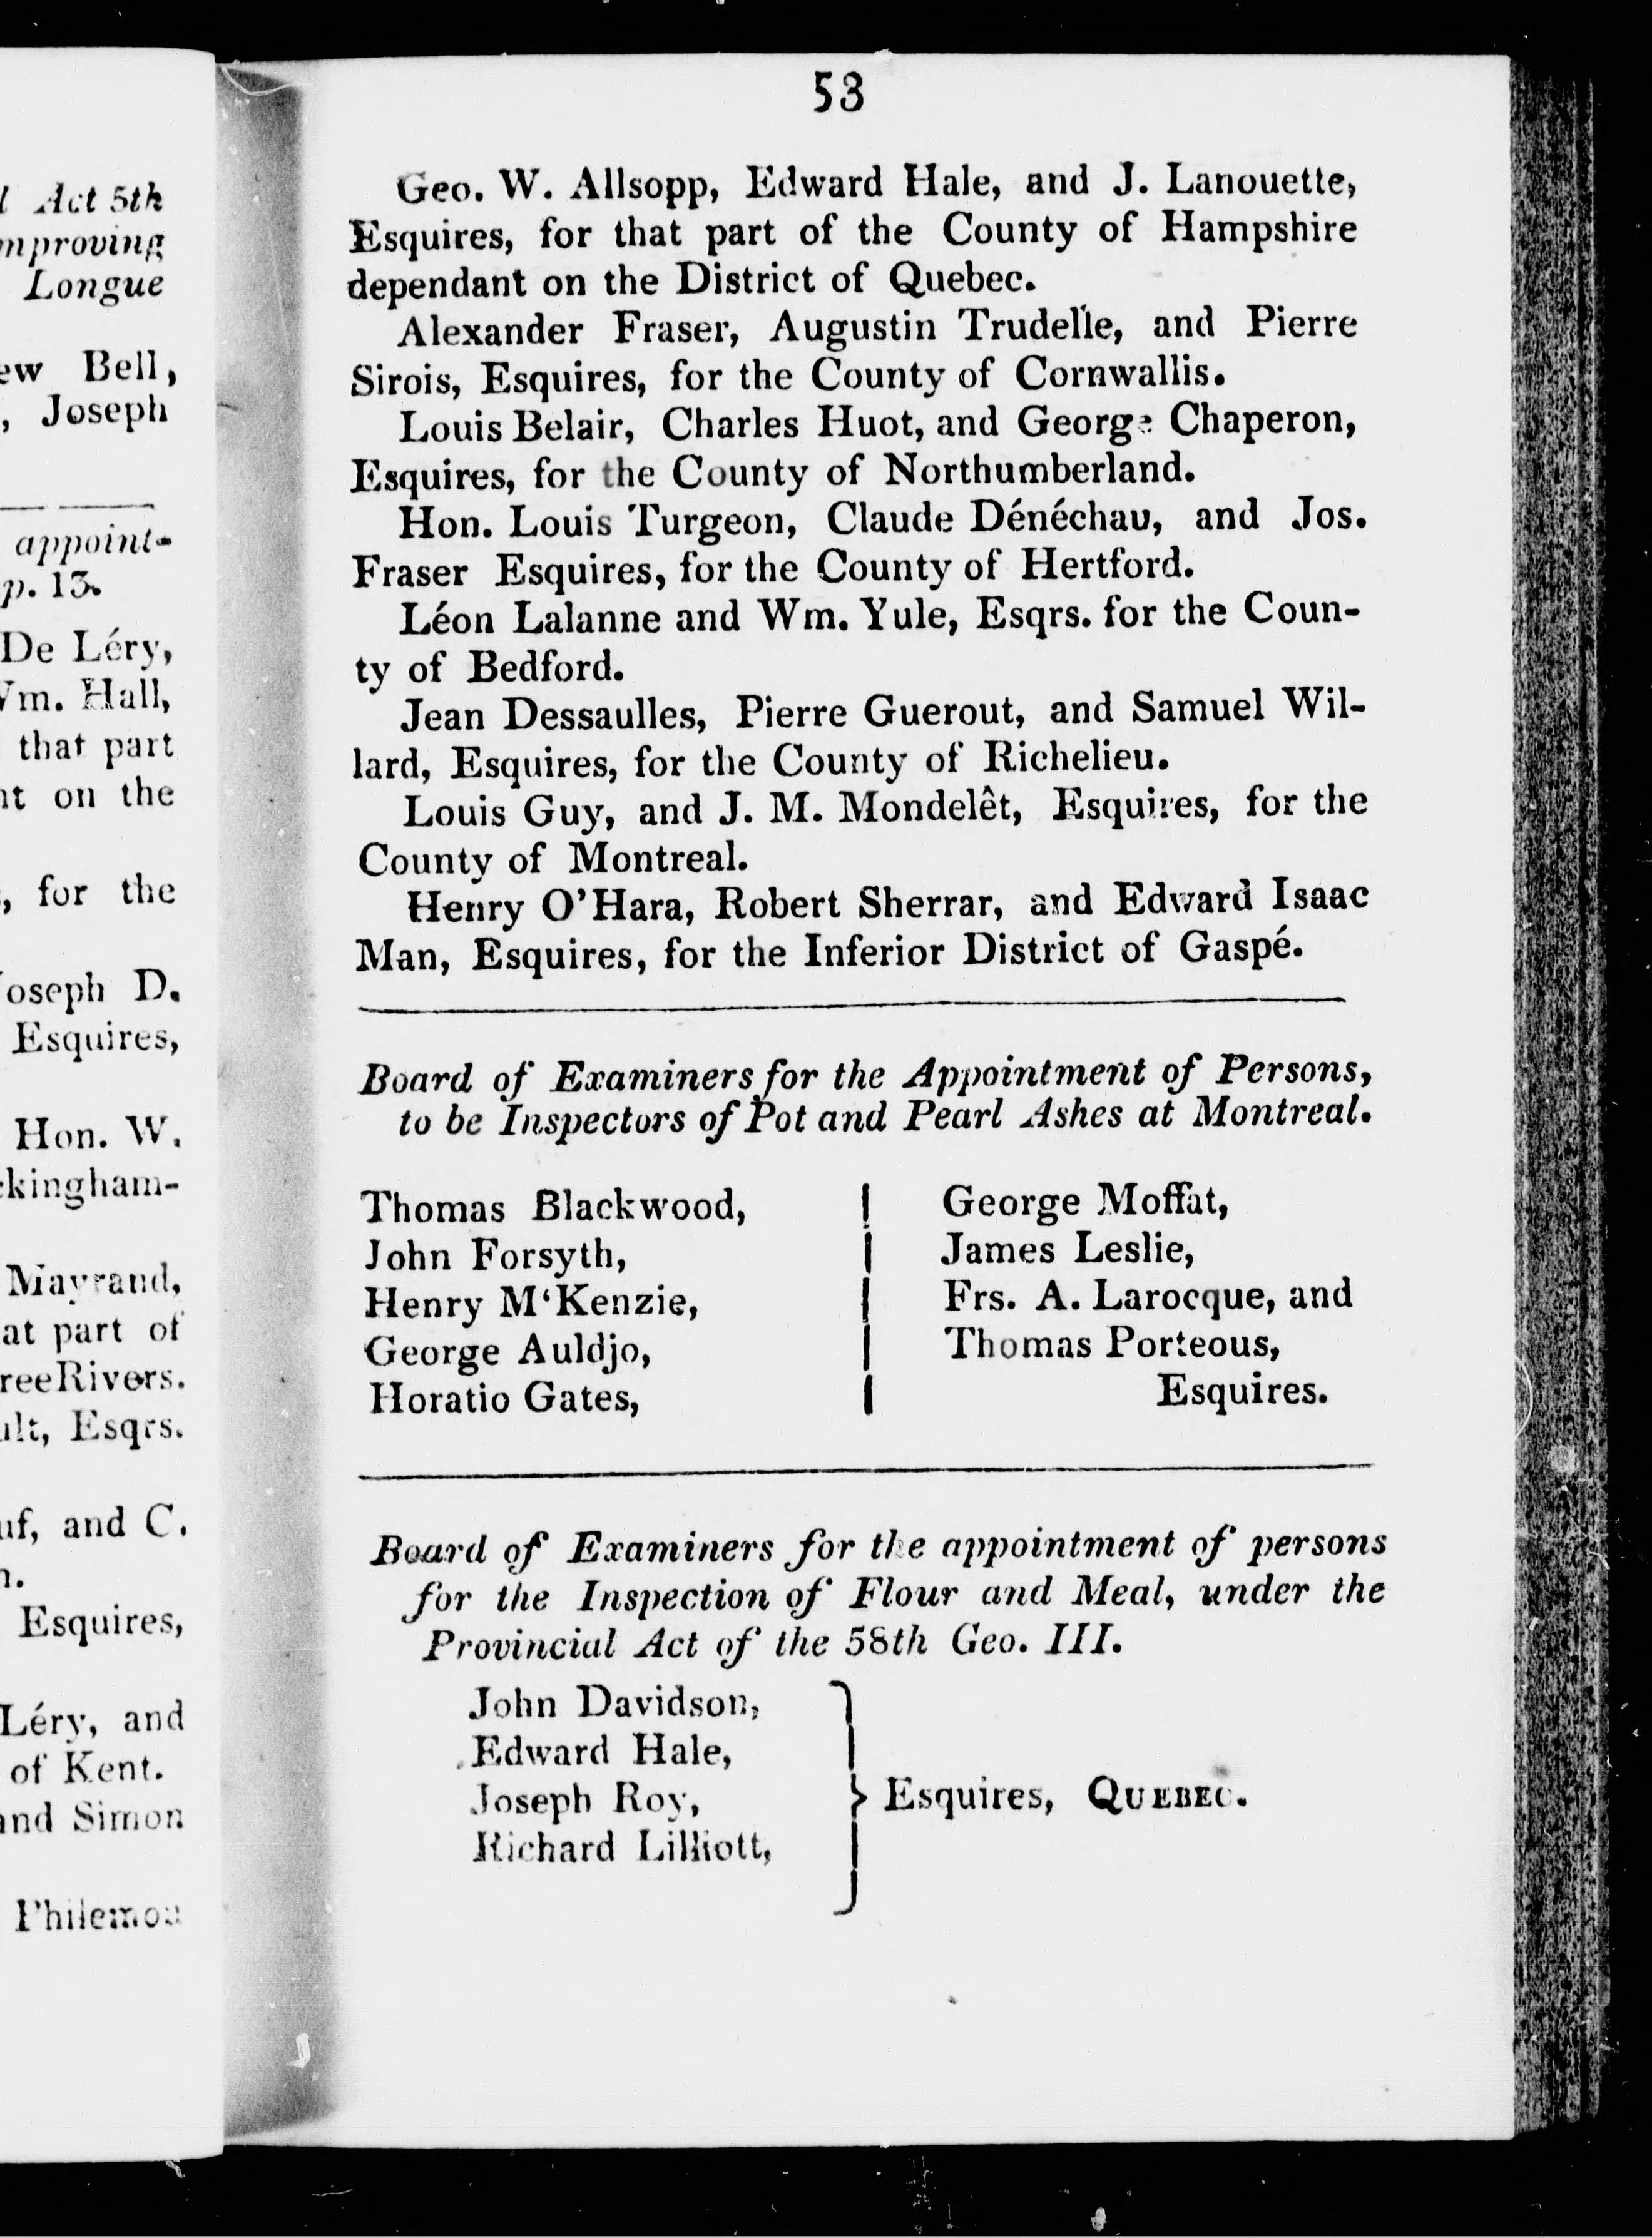 l Act 5th
mproving
Longue
ew Bell,
, Joseph
appoint-
p. 13.
De Léry,
Wm. Hall,
that part
nt on the
, for the
Joseph D.
Esquires,
Hon. W.
ckingham-
Mayrand,
at part of
reeRivers.
ult, Esqrs.
uf, and C.
n.
Esquires,
Léry, and
of Kent.
and Simon
Philemon
53
Geo. W. Allsopp, Edward Hale, and J. Lanouette,
Esquires, for that part of the County of Hampshire
dependant on the District of Quebec.
Alexander Fraser, Augustin Trudelle, and Pierre
Sirois, Esquires, for the County of Cornwallis.
Louis Belair, Charles Huot, and George Chaperon,
Esquires, for the County of Northumberland.
Hon. Louis Turgeon, Claude Dénéchau, and Jos.
Fraser Esquires, for the County of Hertford.
Léon Lalanne and Wm. Yule, Esqrs. for the Coun-
ty of Bedford.
Jean Dessaulles, Pierre Guerout, and Samuel Wil-
lard, Esquires, for the County of Richelieu.
Louis Guy, and J. M. Mondelêt, Esquires, for the
County of Montreal.
Henry O'Hara, Robert Sherrar, and Edward Isaac
Man, Esquires, for the Inferior District of Gaspé.
Board of Examiners for the Appointment of Persons,
to be Inspectors of Pot and Pearl Ashes at Montreal.
Thomas Blackwood,
John Forsyth,
Henry M‘Kenzie,
George Auldjo,
Horatio Gates,
George Moffat,
James Leslie,
Frs. A. Larocque, and
Thomas Porteous,
Esquires.
Board of Examiners for the appointment of persons
for the Inspection of Flour and Meal, under the
Provincial Act of the 58th Geo. III.
John Davidson,
Edward Hale,
Joseph Roy,
Richard Lilliott,
Esquires, QUEBEC.